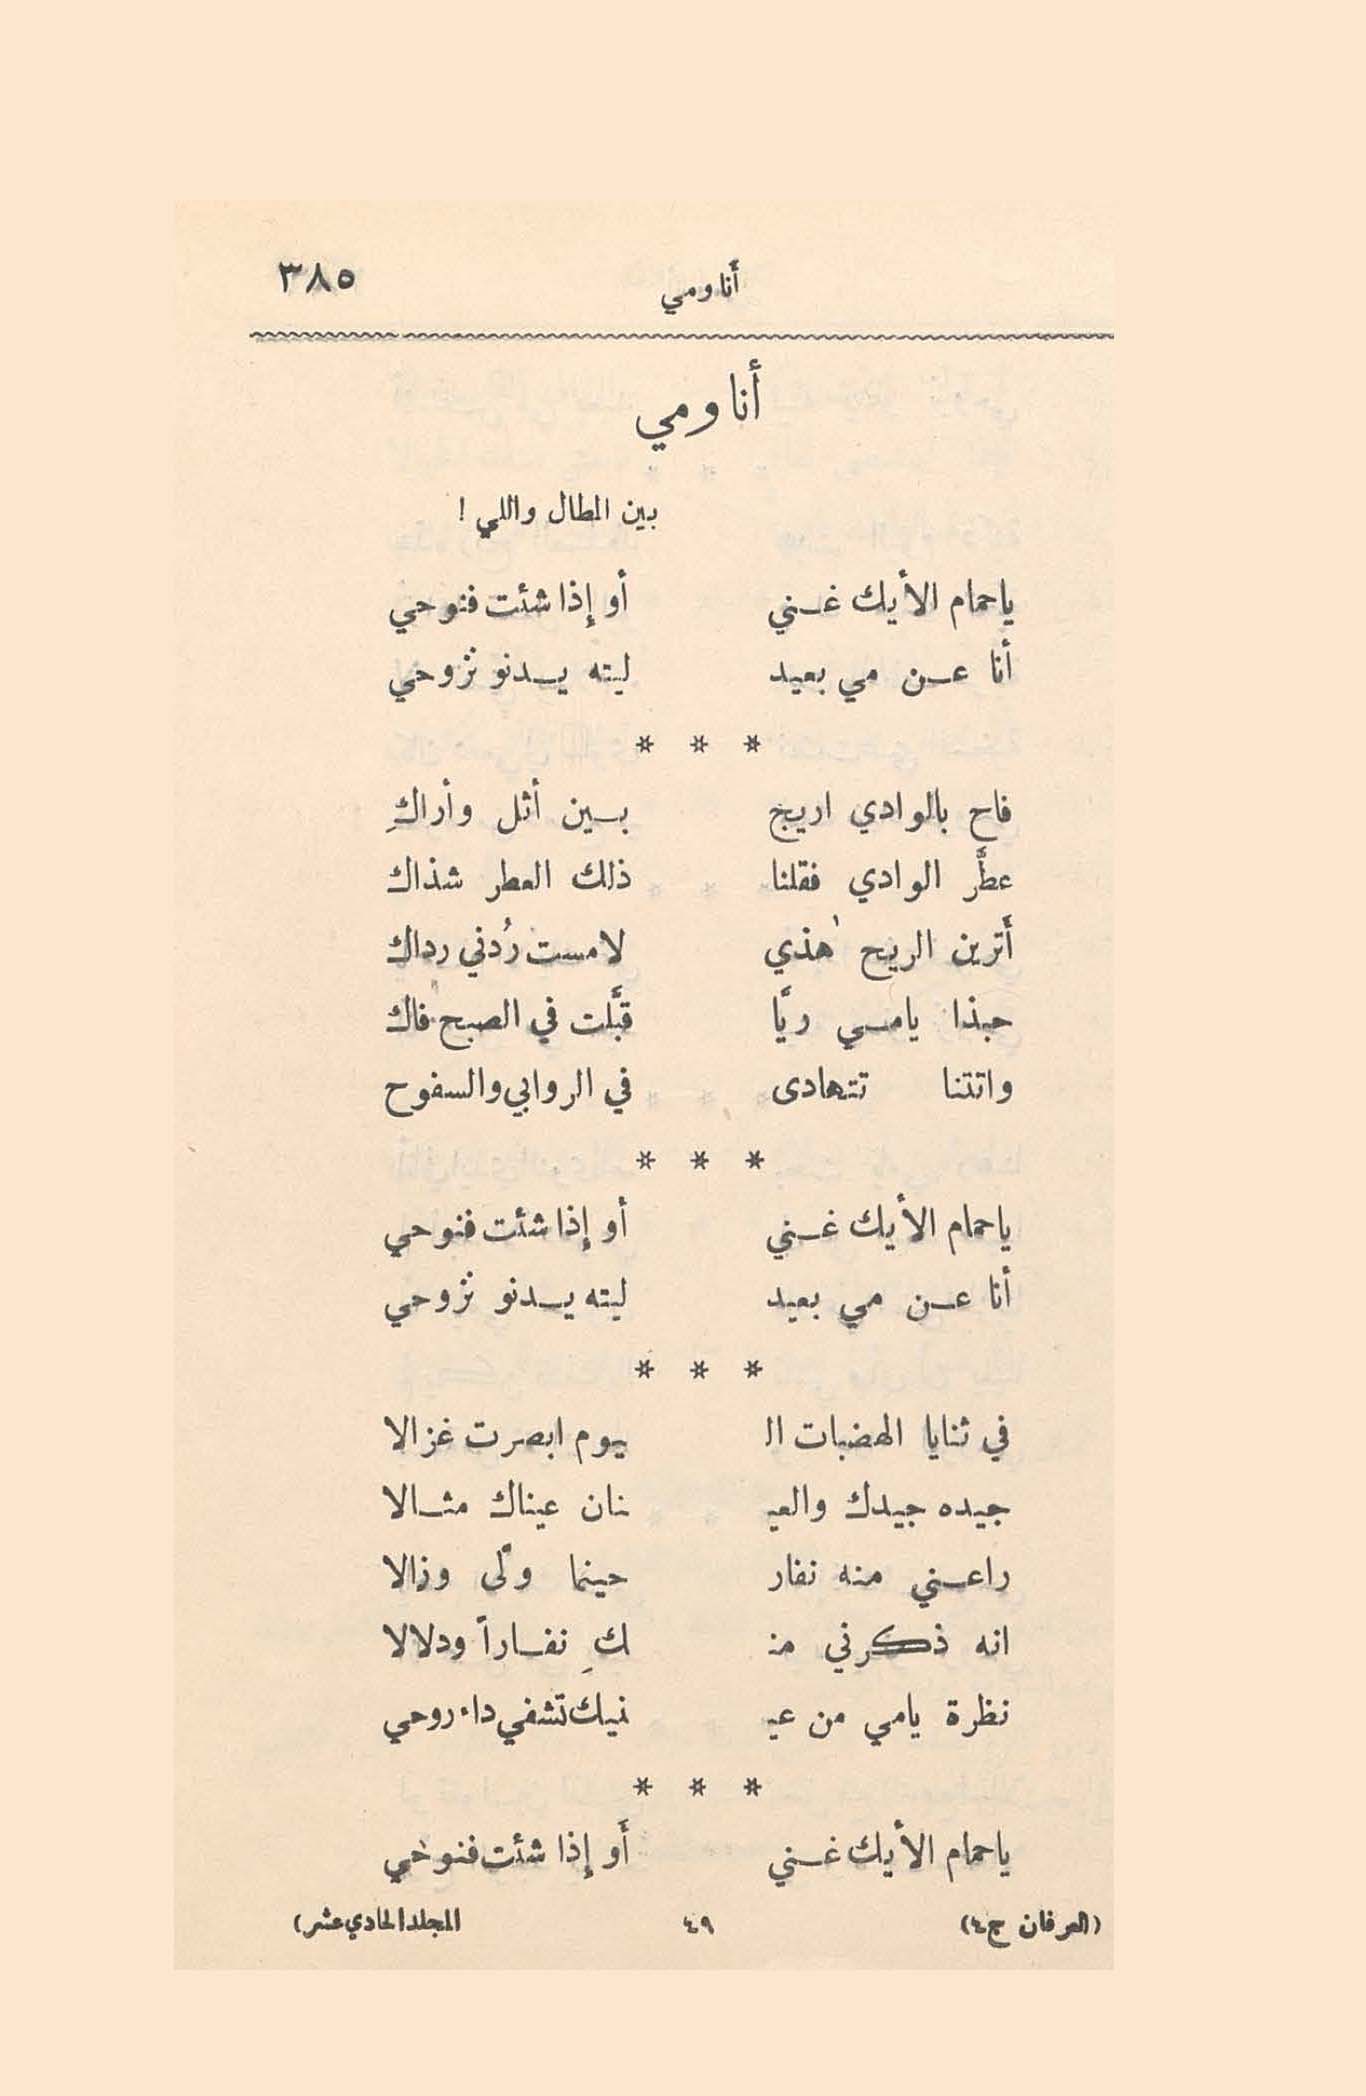 أنا ومي ٣٨٥
أنا ومي
بين المطال واللي !
ياحمام الأيك غـني أو إذا شئت فنوحي
أنا عـن مي بعيد ليته يـدنو نزوحي
* * *
فاح بالوادي اريج بـين أثل وأراكِ
عطَّر الوادي فقلنا ذلك العطر شذاك
أَترين الريح هذي لامست رُدني رداك
حبذا يامـي ريَّا قبَّلت في الصبح فاك
واتتنا تتهادى في الروابي والسفوح
* * *
ياحمام الأيك غـني أو إذا شئت فنوحي
أنا عـن مي بعيد ليته يـدنو نزوحي
* * *
في ثنايا الهضبات الـ ـيوم ابصرت غزالا
جيده جيدك والعيـ ـنان عيناك مثـالا
راعـني منه نفار حينما ولَّى وزالا
انه ذكرني منـ ـكِ نفـاراً ودلالا
نظرة يامي من عيـ ـنيك تشفي داء روحي
* * *
ياحمام الأيك غـني أَو إذا شئت فنوحي
(العرفان ج٤) ٤٩ المجلد الحادي عشر)